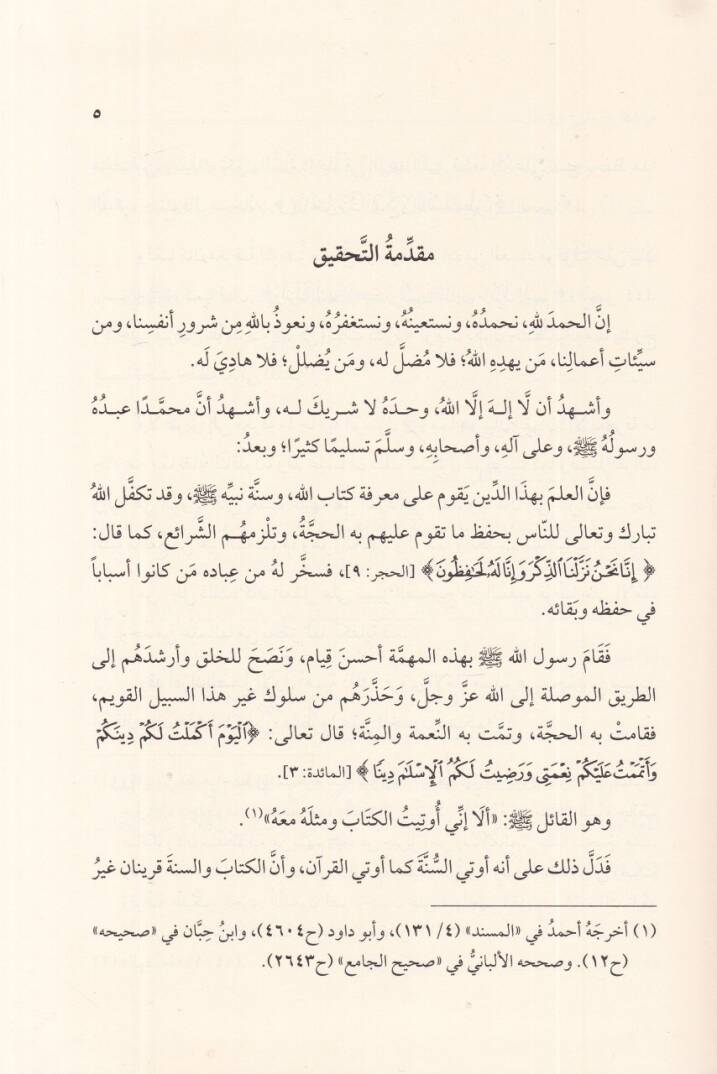 ٥
مقدِّمةُ التَّحقيق
إنَّ الحمدَ للهِ، نحمدُهُ، ونستعينُهُ، ونستغفرُهُ، ونعوذُ باللهِ مِن شرورِ أنفسِنا، ومن
سيِّئاتِ أعمالِنا، مَن يهدِهِ اللهُ؛ فلا مُضلَّ له، ومَن يُضللْ؛ فلا هادِيَ لَه.
وأشهدُ أن لَّا إلهَ إلَّا اللهُ، وحدَهُ لا شريكَ له، وأشهدُ أنَّ محمَّدًا عبدُهُ
ورسولُهُ ﷺ، وعلى آلهِ، وأصحابِهِ، وسلَّمَ تسليمًا كثيرًا؛ وبعدُ:
فإنَّ العلمَ بهذَا الدِّين يَقوم على معرفة كتاب الله، وسنَّة نبيِّه ﷺ، وقد تكفَّل اللهُ
تبارك وتعالى للنّاس بحفظ ما تقوم عليهم به الحجَّةُ، وتلْزمهُم الشَّرائع، كما قال:
﴿إِنَّا نَحْنُ نَزَّلْنَا ٱلذِّكْرَ وَإِنَّا لَهُۥ لَحَٰفِظُونَ﴾ [الحجر: ٩]، فسخَّر لهُ من عِباده مَن كانوا أسباباً
في حفظه وبَقائه.
فَقَامَ رسول الله ﷺ بهذه المهمَّة أحسنَ قِيام، وَنَصَحَ للخلق وأرشدَهُم إلى
الطريق الموصلة إلى الله عزَّ وجلَّ، وَحَذَّرَهُم من سلوك غير هذا السبيل القويم،
فقامتْ به الحجَّة، وتمَّت به النِّعمة والمِنَّة؛ قال تعالى: ﴿ٱلْيَوْمَ أَكْمَلْتُ لَكُمْ دِينَكُمْ
وَأَتْمَمْتُ عَلَيْكُمْ نِعْمَتِى وَرَضِيتُ لَكُمُ ٱلْإِسْلَٰمَ دِينًا﴾ [المائدة: ٣].
وهو القائل ﷺ: «ألَا إنِّي أُوتِيتُ الكتَابَ ومثلَهُ معَهُ»(١).
فَدَلَّ ذلك على أنه أوتي السُّنَّةَ كما أوتي القرآن، وأنَّ الكتابَ والسنةَ قرينان غيرُ
(١) أخرجَهُ أحمدُ في «المسند» (٤/ ١٣١)، وأبو داود (ح٤٦٠٤)، وابنُ حِبَّان في «صحيحه»
(ح١٢). وصححه الألبانيُّ في «صحيح الجامع» (ح٢٦٤٣).